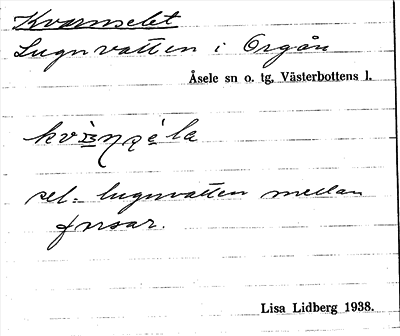 Kvarnselet
Lugnvatten i Orgån
Åsele sn o. tg. Västerbottens l.
sel = lugnvatten mellan
forsar.
Lisa Lidberg 1938.